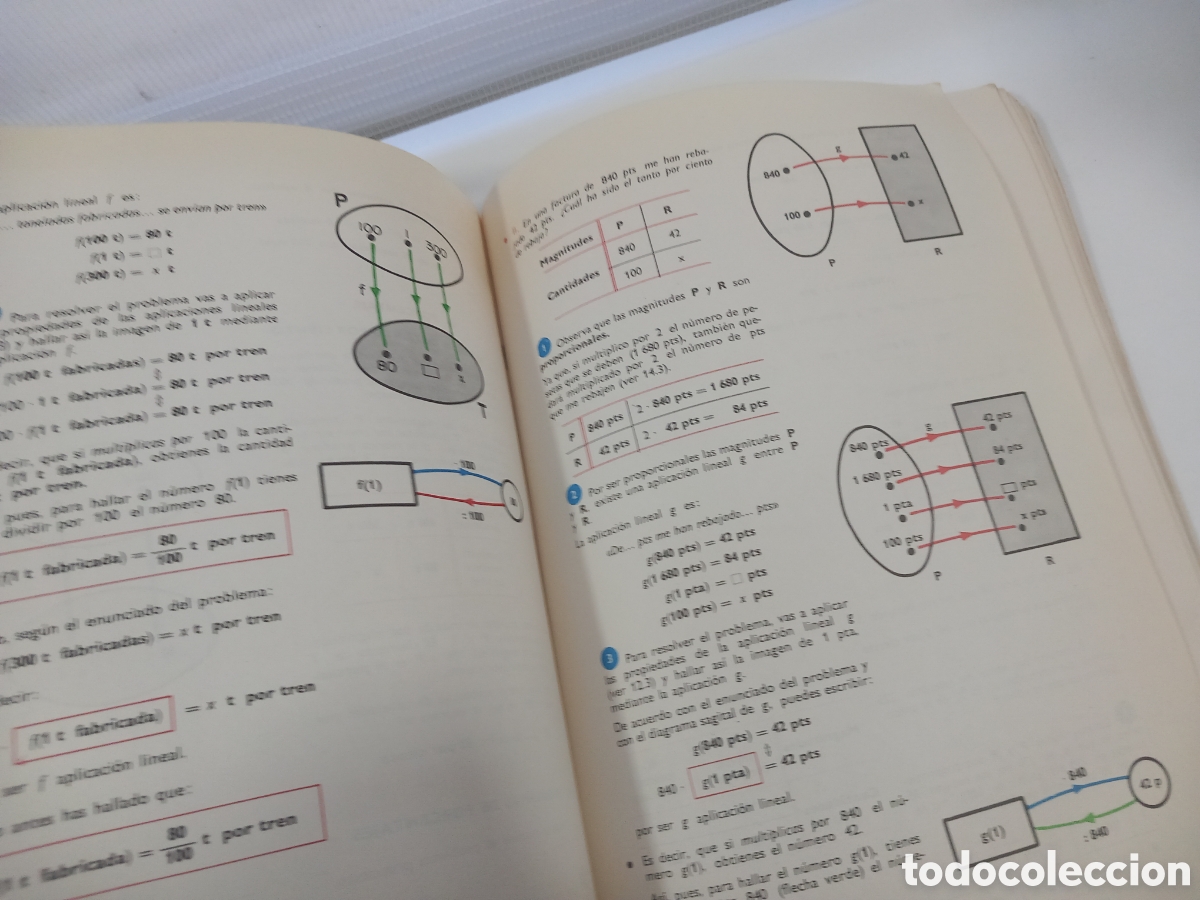 aplicación lineal f es:
... toneladas fabricadas... se envían por tren»
f(100 t) = 80 t
f(1 t) = □ t
f(300 t) = x t
Para resolver el problema vas a aplicar
propiedades de las aplicaciones lineales
y hallar así la imagen de 1 t mediante
aplicación f.
f(100 t fabricadas) = 80 t por tren
100 · 1 t fabricada) = 80 t por tren
f(1 t fabricada) = 80 t por tren
decir, que si multiplicas por 100 la canti-
f(1 t fabricada), obtienes la cantidad
t por tren.
pues, para hallar el número f(1) tienes
dividir por 100 el número 80.
f(1 t fabricada) = 80/100 t por tren
según el enunciado del problema:
f(300 t fabricadas) = x t por tren
decir:
f(1 t fabricada) = x t por tren
ser f aplicación lineal.
antes has hallado que:
(1 t fabricada) = 80/100 t por tren
P
100 1 300
f
80 □ x
T
f(1)
· 100
: 100
En una factura de 840 pts me han reba-
jado 42 pts. ¿Cuál ha sido el tanto por ciento
de rebaja?
Magnitudes P R
Cantidades 840 42
100 x
840 g 42
100 x
P R
1 Observa que las magnitudes P y R son
proporcionales.
Ya que, si multiplico por 2 el número de pe-
setas que se deben (1 680 pts), también que-
dará multiplicado por 2 el número de pts
que me rebajen (ver 14.3).
P 840 pts 2 · 840 pts = 1 680 pts
R 42 pts 2 · 42 pts = 84 pts
2 Por ser proporcionales las magnitudes P
y R, existe una aplicación lineal g entre P
y R.
La aplicación lineal g es:
«De... pts me han rebajado... pts»
g(840 pts) = 42 pts
g(1 680 pts) = 84 pts
g(1 pta) = □ pts
g(100 pts) = x pts
840 pts g 42 pts
1 680 pts 84 pts
1 pta □ pts
100 pts x pts
P R
3 Para resolver el problema, vas a aplicar
las propiedades de la aplicación lineal g
(ver 12.3) y hallar así la imagen de 1 pta,
mediante la aplicación g.
De acuerdo con el enunciado del problema y
con el diagrama sagital de g, puedes escribir:
g(840 pts) = 42 pts
840 · g(1 pta) = 42 pts
por ser g aplicación lineal.
• Es decir, que si multiplicas por 840 el nú-
mero g(1), obtienes el número 42.
pues, para hallar el número g(1), tienes
840 (flecha verde) el núme-
g(1)
· 840
42 p
: 840
todocoleccion